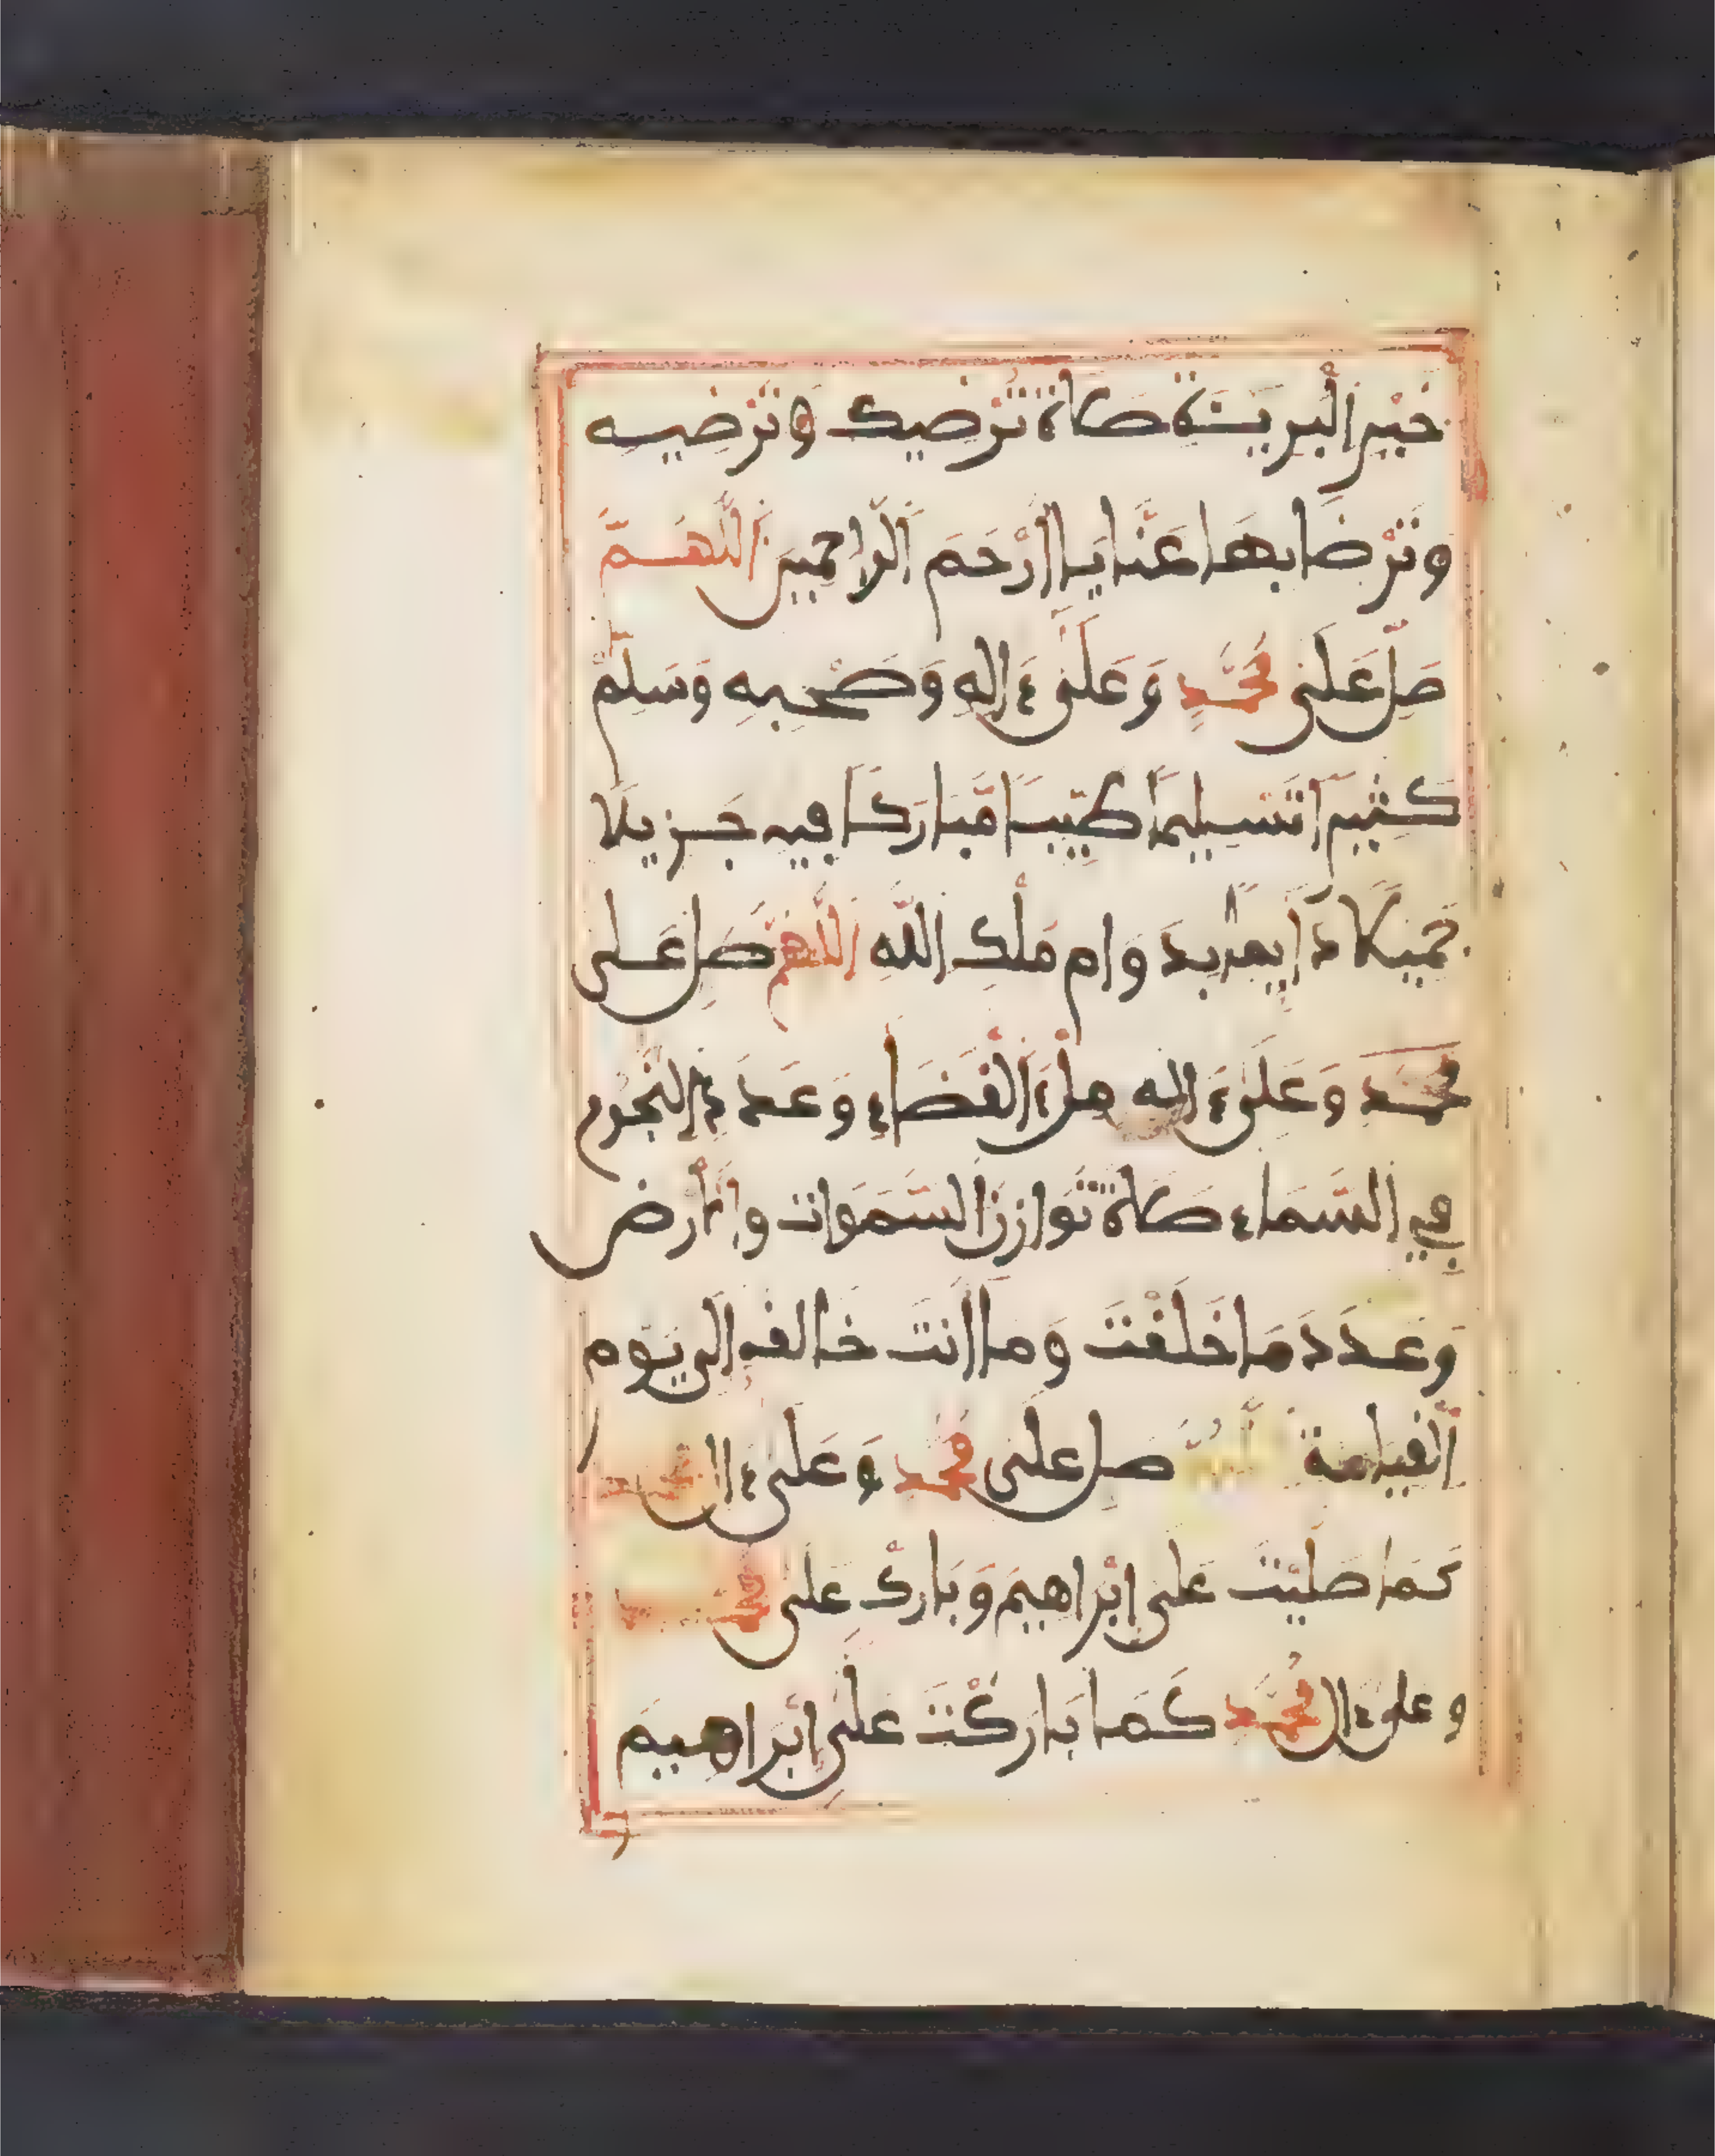 خَيْرِ الْبَرِيَّةِ صَلَاةً تُرْضِيكَ وَتُرْضِيهِ
وَتَرْضَا بِهَا عَنَّا يَا أَرْحَمَ الرَّاحِمِينَ اللَّهُمَّ
صَلِّ عَلَى مُحَمَّدٍ وَعَلَى ءَالِهِ وَصَحْبِهِ وَسَلِّمْ
كَثِيرًا تَسْلِيمًا طَيِّبًا مُّبَارَكًا فِيهِ جَزِيلًا
جَمِيلًا دَايِمًا بِدَوَامِ مُلْكِ اللَّهِ اللَّهُمَّ صَلِّ عَلَى
مُحَمَّدٍ وَعَلَى ءَالِهِ مِلْءَ الْفَضَاءِ وَعَدَدَ النُّجُومِ
فِي السَّمَاءِ صَلَاةً تُوَازِنُ السَّمَوَاتِ وَالْأَرْضَ
وَعَدَدَ مَا خَلَقْتَ وَمَا أَنْتَ خَالِقُهُ إِلَى يَوْمِ
الْقِيَامَةِ اللَّهُمَّ صَلِّ عَلَى مُحَمَّدٍ وَعَلَى ءَالِ مُحَمَّدٍ
كَمَا صَلَّيْتَ عَلَى إِبْرَاهِيمَ وَبَارِكْ عَلَى مُحَمَّدٍ
وَعَلَى ءَالِ مُحَمَّدٍ كَمَا بَارَكْتَ عَلَى إِبْرَاهِيمَ